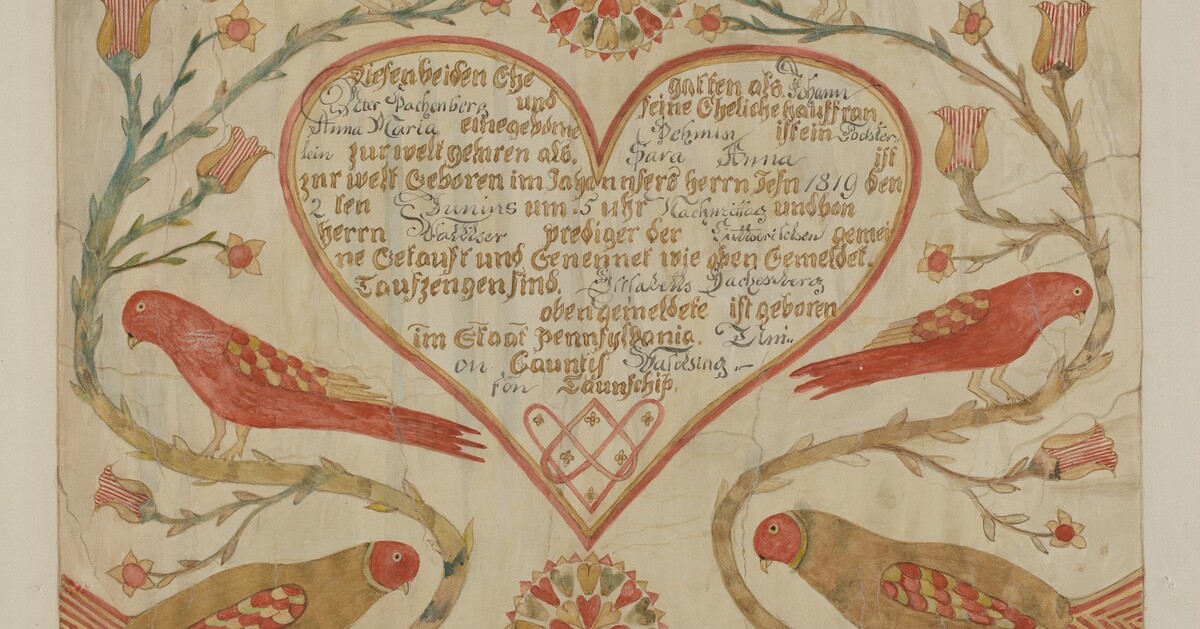 Diesen beiden Ehe gatten als Johann
Peter Dachenberg und seine Eheliche hauffrau
Anna Maria eine gebohrne Dehmin ist ein Döchter-
lein zur welt gebiren als. Sara Anna ist
zur welt Geboren im Jahr unsers herrn Jesu 1819 den
2 ten Junius um 5 uhr Nachmittag und von
herrn prediger der gemei
ne Getauft und Genennet wie oben Gemeldet.
Taufzeugen sind. Dachenberg
oben gemeldete ist geboren
im Staat Pennsylvania. Uni-
on Cauntis
ton Taunschip.